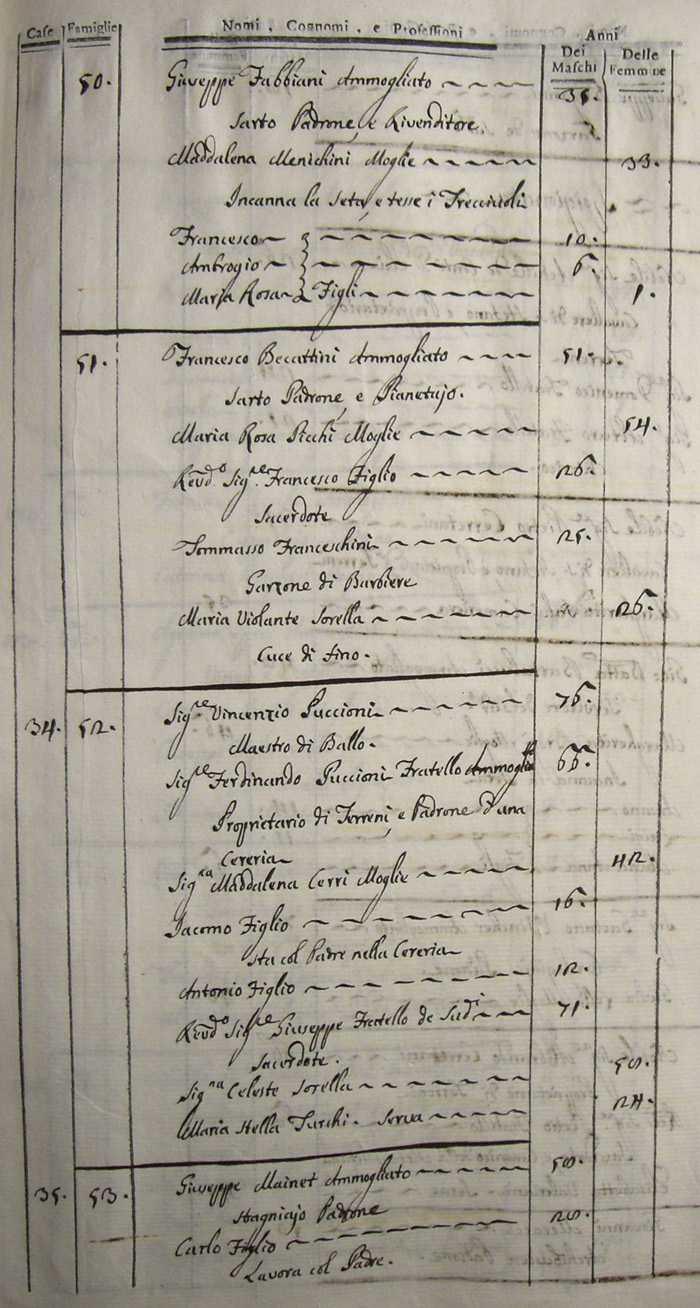 Case Famiglie Nomi, Cognomi, e Professioni Anni
Dei Maschi Delle Femmine
50. Giuseppe Fabbiani Ammogliato 35.
Sarto Padrone, e Rivenditore.
Maddalena Menichini Moglie 33.
Incanna la Seta, e tesse i Trecciuoli
Francesco 10.
Ambrogio 6.
Maria Rosa Figli 1.
51. Francesco Becattini Ammogliato 51.
Sarto Padrone, e Pianetajo.
Maria Rosa Picchi Moglie 54.
Revd.º Sig.re Francesco Figlio 26.
Sacerdote
Tommasso Franceschini 25.
Garzone di Barbiere
Maria Violante Sorella 26.
Cuce di fino.
34. 52. Sig.re Vincenzio Puccioni 76.
Maestro di Ballo.
Sig.re Ferdinando Puccioni Fratello 66.
Proprietario di Terreni, e Padrone d'una
Cereria
Sig.ra Maddalena Cerri Moglie 42.
Iacomo Figlio 16.
Sta col Padre nella Cereria
Antonio Figlio 12.
Revd.º Sig.re Giuseppe Fratello de Sud.i 71.
Sacerdote. 50.
Sig.na Celeste Sorella
Maria Stella Turchi. Serva 24.
35. 53. Giuseppe Mainet Ammogliato 50.
Stagniajo Padrone
Carlo Figlio 20.
Lavora col Padre.